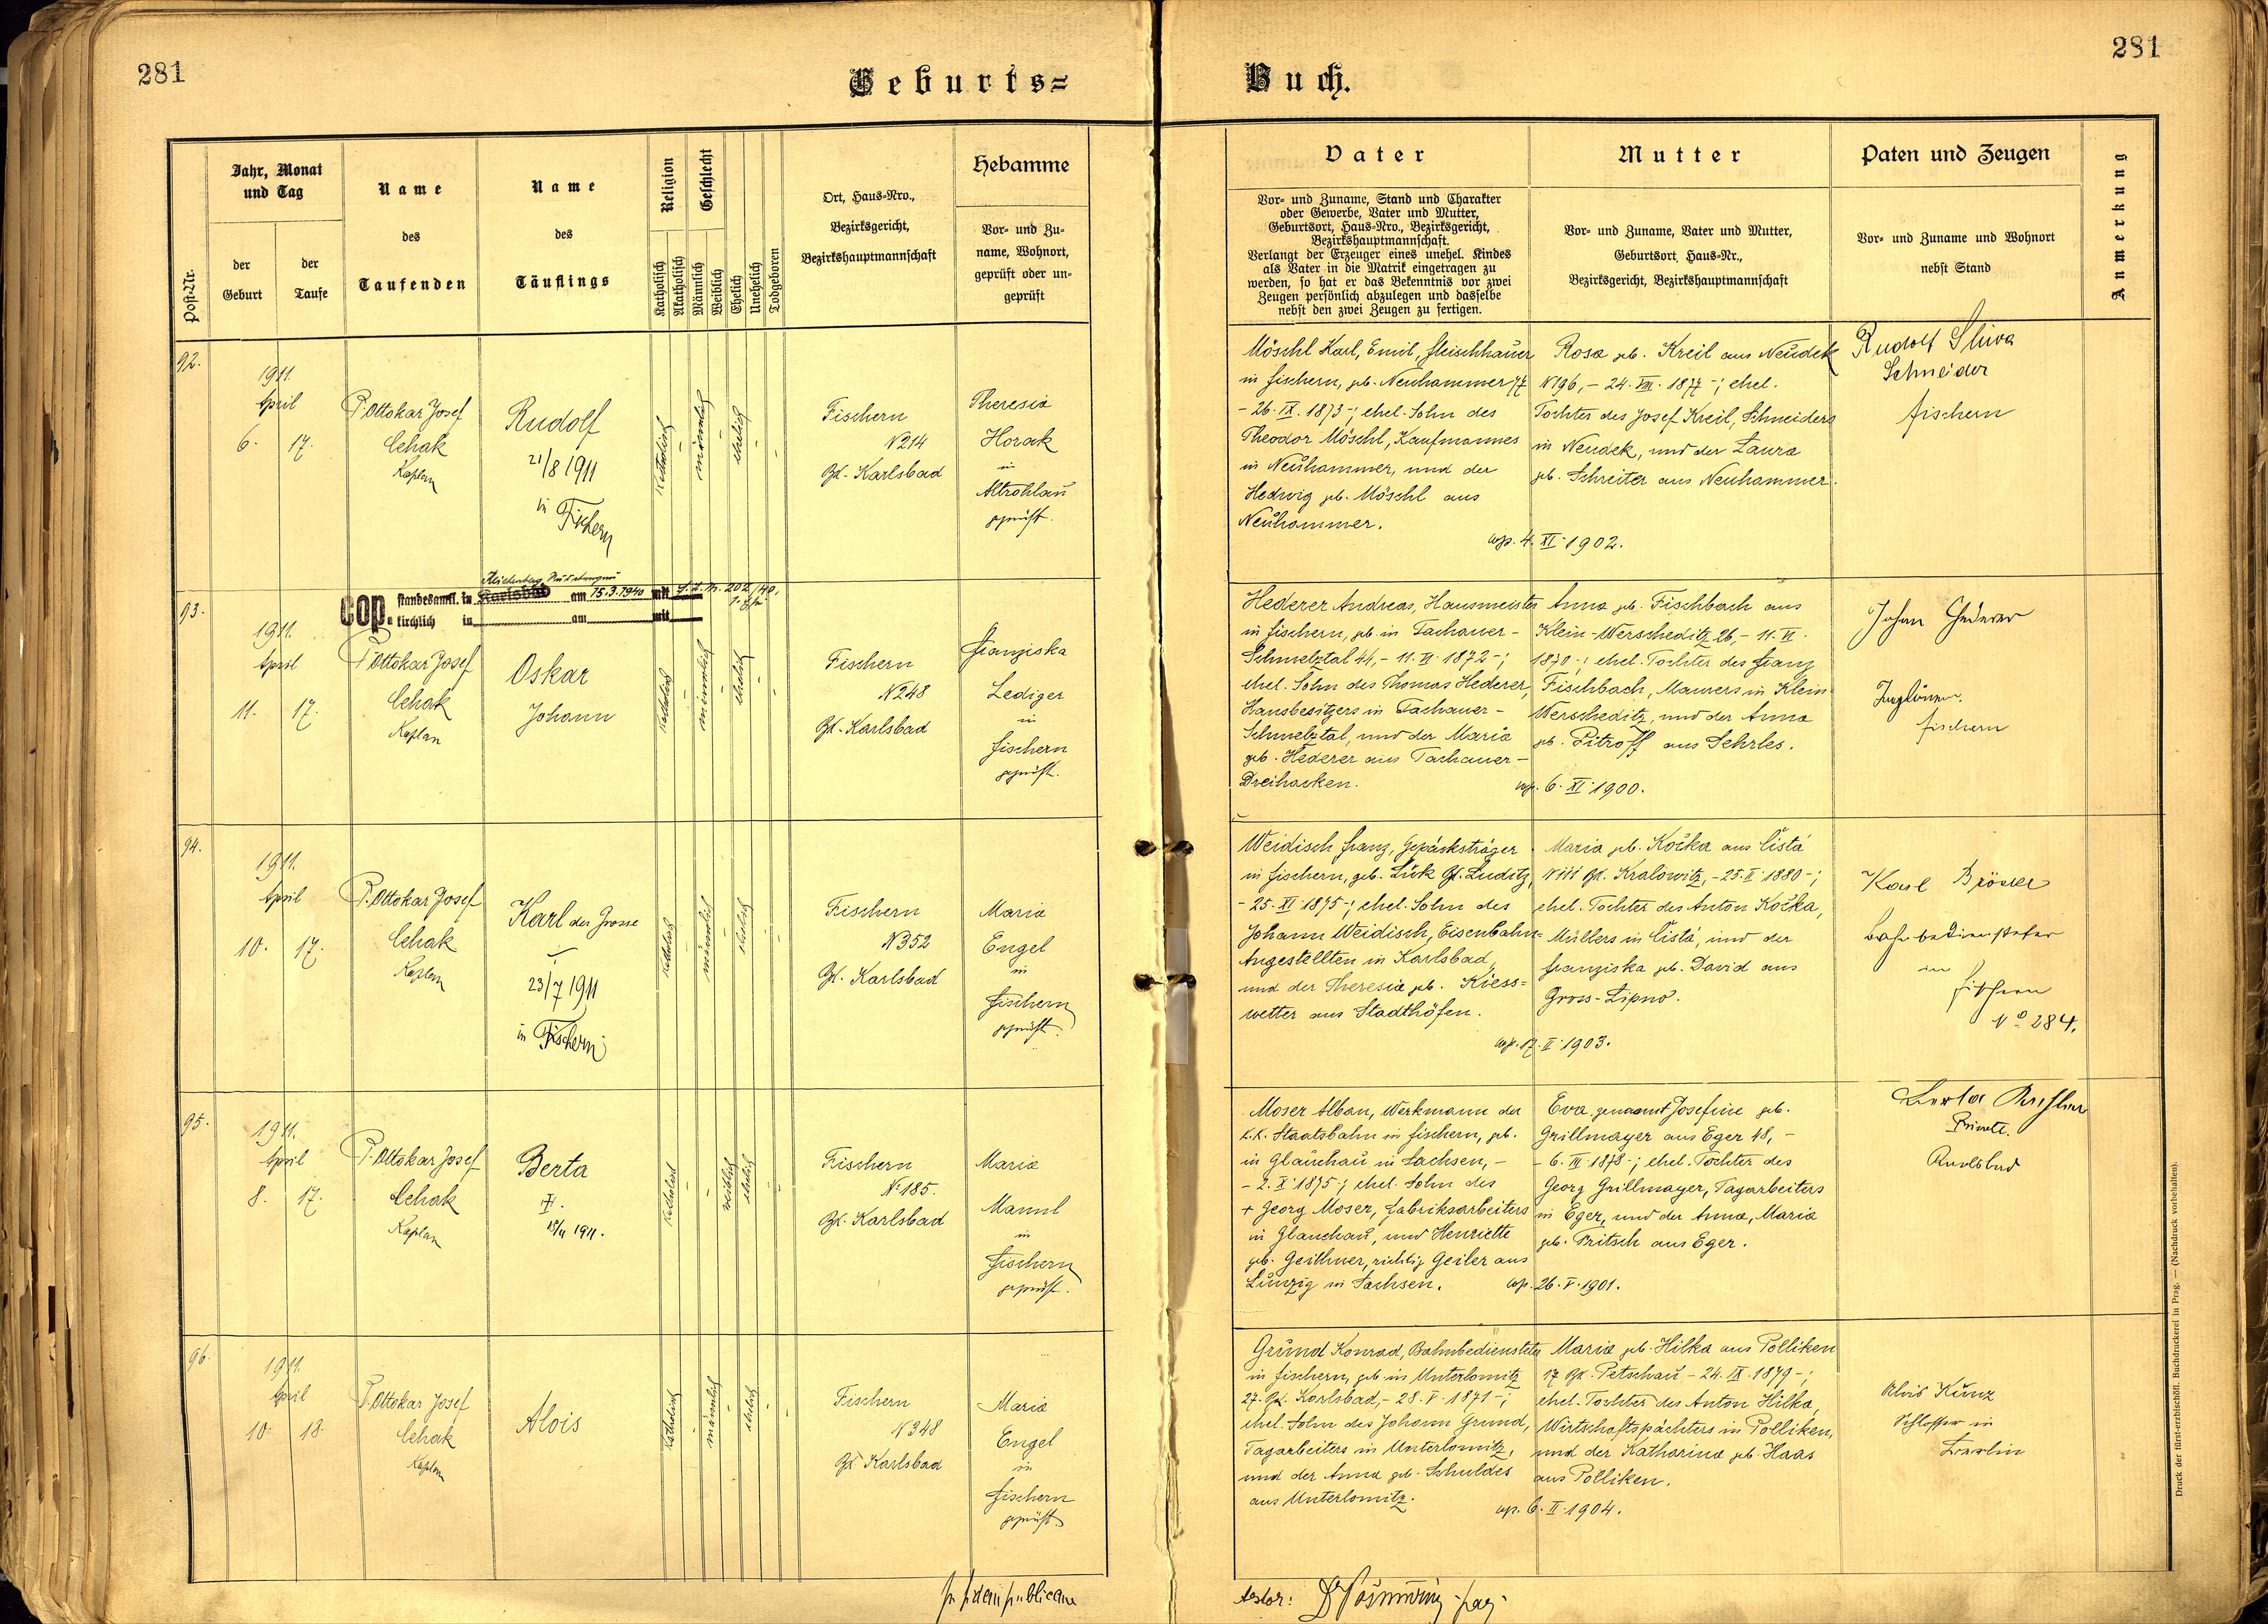 281
281
Geburts=
Buch.
Post-Nr.
Jahr, Monat
und Tag
der
Geburt
der
Taufe
Name
des
Taufenden
Name
des
Täuflings
Religion
Katholisch
Akatholisch
Geschlecht
Männlich
Weiblich
Ehelich
Unehelich
Todgeboren
Ort, Haus-Nro.,
Bezirksgericht,
Bezirkshauptmannschaft
Hebamme
Vor- und Zu-
name, Wohnort,
geprüft oder un-
geprüft
Vater
Vor- und Zuname, Stand und Charakter
oder Gewerbe, Vater und Mutter,
Geburtsort, Haus-Nro., Bezirksgericht,
Bezirkshauptmannschaft.
Verlangt der Erzeuger eines unehel. Kindes
als Vater in die Matrik eingetragen zu
werden, so hat er das Bekenntnis vor zwei
Zeugen persönlich abzulegen und dasselbe
nebst den zwei Zeugen zu fertigen.
Mutter
Vor- und Zuname, Vater und Mutter,
Geburtsort, Haus-Nr.,
Bezirksgericht, Bezirkshauptmannschaft
Paten und Zeugen
Vor- und Zuname und Wohnort
nebst Stand
Anmerkung
92.
1911.
April
6. 17.
P. Ottokar Josef
Cehak
Kaplan
Rudolf
21/8 1911
in Fischern
katholisch
männlich
ehelich
Fischern
N 214
Bzk. Karlsbad
Theresia
Horak
in
Altrohlau
geprüft.
Möschl Karl, Emil, Fleischhauer
in Fischern, geb. Neuhammer 77
- 26. IX. 1873 -; ehel. Sohn des
Theodor Möschl, Kaufmannes
in Neuhammer, und der
Hedwig geb. Möschl aus
Neuhammer.
Rosa geb. Kreil aus Neudek
N 196, - 24. VIII. 1877 -; ehel.
Tochter des Josef Kreil, Schneiders
in Neudek, und der Laura
geb. Schreiter aus Neuhammer.
cop. 4. XI. 1902.
Rudolf Sliwa
Schneider
Fischern
93.
cop. standesamtl. in Karlsbad am 15.3.1940 mit
kirchlich in am mit
1911.
April
11. 17.
P. Ottokar Josef
Cehak
Kaplan
Oskar
Johann
katholisch
männlich
ehelich
Fischern
N 248
Bzk. Karlsbad
Franziska
Lediger
in
Fischern
geprüft.
Hederer Andreas, Hausmeister
in Fischern, geb. in Tachauer-
Schmelztal 44, - 11. VI. 1872 -;
ehel. Sohn des Thomas Hederer,
Hausbesitzers in Tachauer-
Schmelztal, und der Maria
geb. Hederer aus Tachauer-
Dreihacken.
Anna geb. Fischbach aus
Klein-Werscheditz 26, - 11. VI.
1870 -; ehel. Tochter des Franz
Fischbach, Maurers in Klein
Werscheditz, und der Anna
geb. Pitroff aus Sehrles.
cop. 6. XI. 1900.
Johan Hederer
Fischern
94.
1911.
April
10. 17.
P. Ottokar Josef
Cehak
Kaplan
Karl der Grosse
23/7 1911
in Fischern
katholisch
männlich
ehelich
Fischern
N 352
Bzk. Karlsbad
Maria
Engel
in
Fischern
geprüft.
Weidisch Franz, Gepäcksträger
in Fischern, geb. Luk Bzk. Luditz,
- 25. XI. 1875 -; ehel. Sohn des
Johann Weidisch, Eisenbahn=
Angestellten in Karlsbad,
und der Theresia geb. Kiess=
wetter aus Stadthöfen.
Maria geb. Kočka aus Čistá
N 111 Bzk. Kralowitz, - 25. II. 1880 -;
ehel. Tochter des Anton Kočka,
Müllers in Čistá, und der
Franziska geb. David aus
Gross-Lipno.
cop. 17. II. 1903.
Karl Bröser
Bahnbediensteter
in
Fischern
No 284.
95.
1911.
April
8. 17.
P. Ottokar Josef
Cehak
Kaplan
Berta
katholisch
weiblich
ehelich
Fischern
N 185.
Bzk. Karlsbad
Maria
Mannl
in
Fischern
geprüft.
Moser Alban, Werkmann der
k.k. Staatsbahn in Fischern, geb.
in Glauchau in Sachsen, -
- 2. X. 1875 -; ehel. Sohn des
+ Georg Moser, Fabriksarbeiters
in Glauchau, und Henriette
geb. Geithner, richtig Geiler aus
Lunzig in Sachsen.
Eva genannt Josefine geb.
Grillmayer aus Eger 48, -
- 6. III. 1878 -; ehel. Tochter des
Georg Grillmayer, Tagarbeiters
in Eger, und der Anna, Maria
geb. Pritsch aus Eger.
cop. 26. V. 1901.
Private.
Karlsbad
96.
1911.
April
10. 18.
P. Ottokar Josef
Cehak
Kaplan
Alois
katholisch
männlich
ehelich
Fischern
N 348
Bzk. Karlsbad
Maria
Engel
in
Fischern
geprüft
Grund Konrad, Bahnbediensteter
in Fischern, geb. in Unterlomitz
27. Bzk. Karlsbad, - 28. V. 1871 -;
ehel. Sohn des Johann Grund,
Tagarbeiters in Unterlomitz,
und der Anna geb. Schuldes
aus Unterlomitz.
Maria geb. Hilka aus Polliken
17 Bzk. Petschau - 24. IX. 1879 -;
ehel. Tochter des Anton Hilka,
Wirtschaftspächters in Polliken,
und der Katharina geb. Haas
aus Polliken.
cop. 6. II. 1904.
Alois Kunz
Schlosser in
pro fidem publicam
testor:
Druck der fürst-erzbischöfl. Buchdruckerei in Prag. — (Nachdruck vorbehalten).